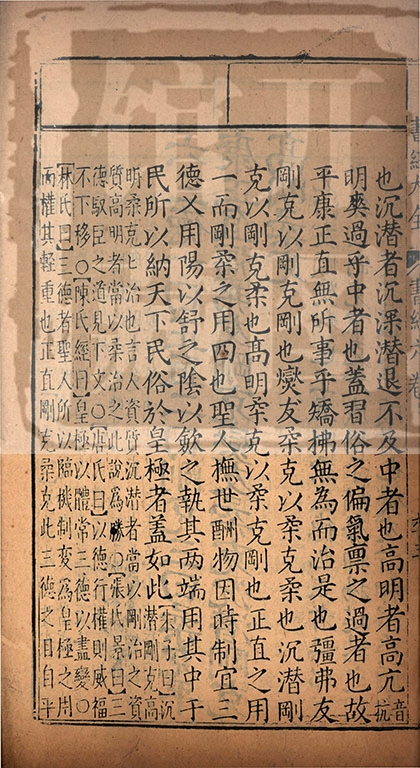 也沉潜者沉深潜退不及中者也高明者高亢音抗
明爽過乎中者也蓋習俗之偏氣禀之過者也故
平康正直無所事乎矯拂無為而治是也彊弗友
剛克以剛克剛也燮友柔克以柔克柔也沉潜剛
克以剛克柔也高明柔克以柔克剛也正直之用
一而剛柔之用四也聖人撫世酬物因時制宜三
德乂用陽以舒之陰以斂之執其兩端用其中于
民所以納天下民俗於皇極者蓋如此【朱子曰】沉潜剛克高
明柔克𠤎治也言人資質沉潜者當以剛治之資
質高明者當以柔治之此説為勝○【張氏景曰】三
德馭臣之道見下文○【唐氏曰】以德行權則威福
不下移○【陳氏經曰】皇極以體常三德以盡變○
【林氏曰】三德者聖人所以臨機制変為皇極之用
而權其輕重也正直剛克柔克此三德之目自平